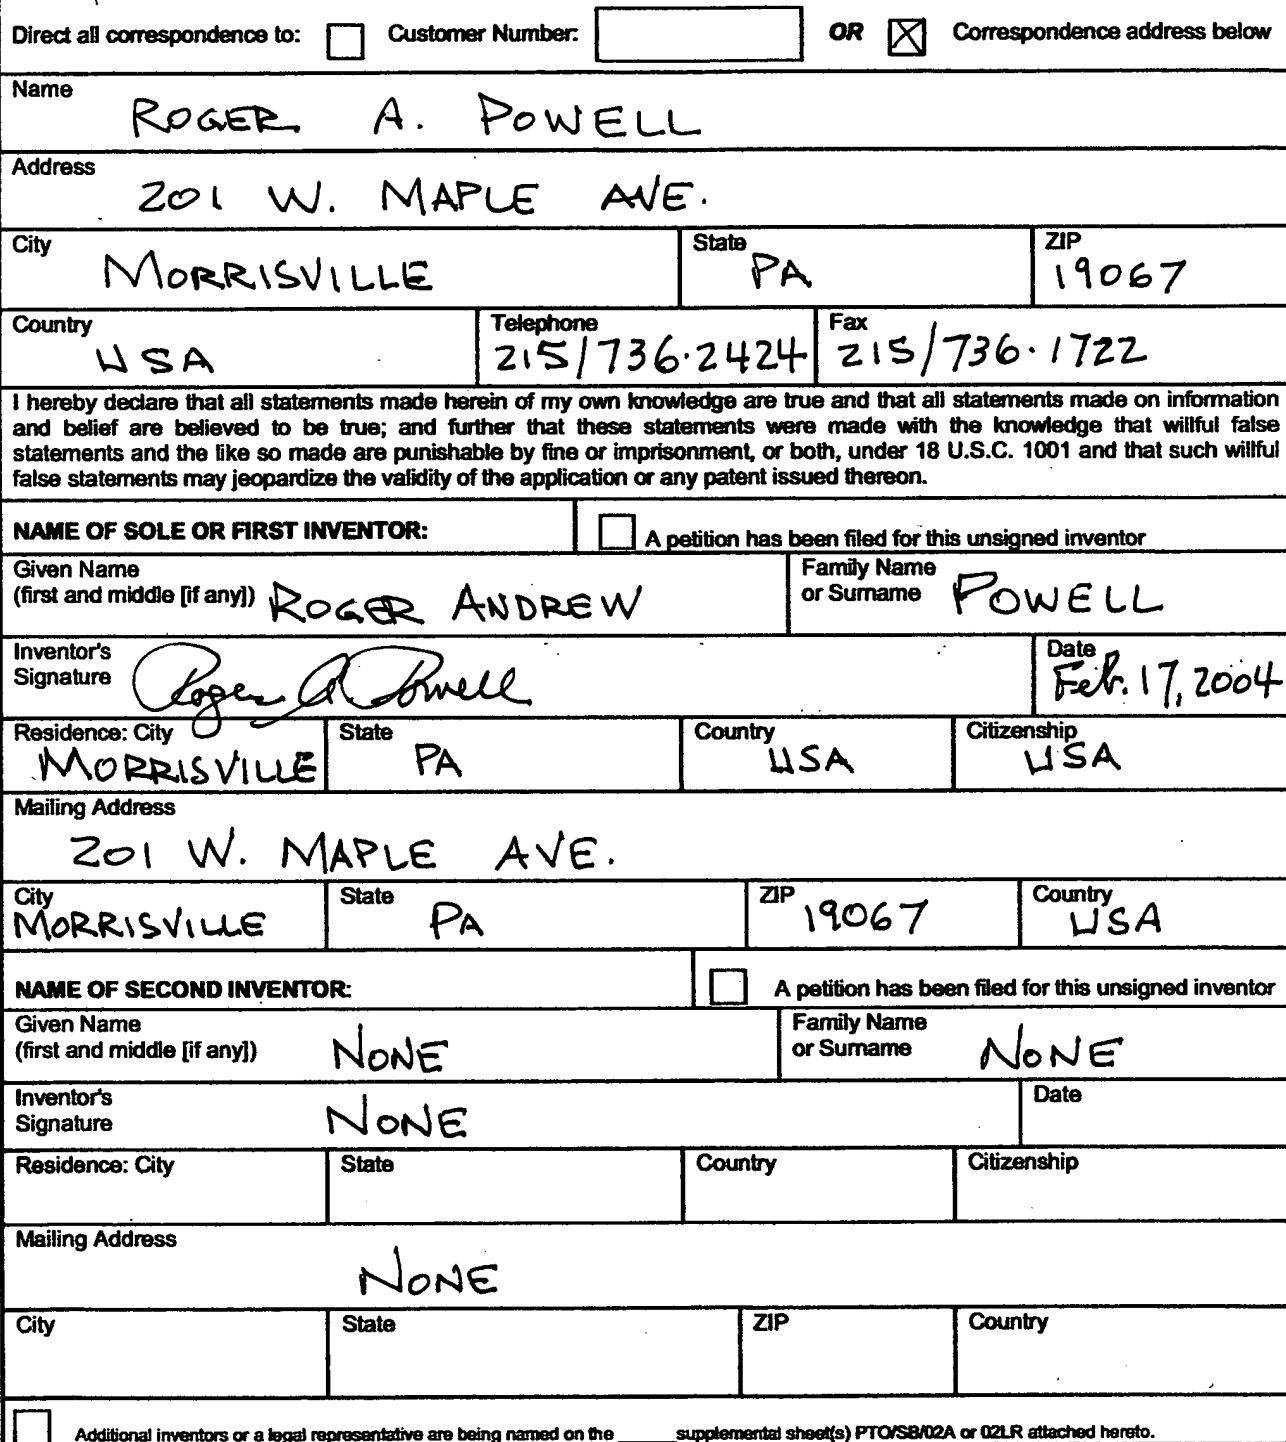 Direct all correspondence to: Customer Number: OR Correspondence address below
Name
ROGER A. POWELL
Address
201 W. MAPLE AVE.
City State ZIP
MORRISVILLE PA 19067
Country Telephone Fax
USA 215/736·2424 215/736·1722
I hereby declare that all statements made herein of my own knowledge are true and that all statements made on information
and belief are believed to be true; and further that these statements were made with the knowledge that willful false
statements and the like so made are punishable by fine or imprisonment, or both, under 18 U.S.C. 1001 and that such willful
false statements may jeopardize the validity of the application or any patent issued thereon.
NAME OF SOLE OR FIRST INVENTOR: A petition has been filed for this unsigned inventor
Given Name Family Name
(first and middle [if any]) ROGER ANDREW or Surname POWELL
Inventor's Date
Signature Roger A Powell Feb. 17, 2004
Residence: City State Country Citizenship
MORRISVILLE PA USA USA
Mailing Address
201 W. MAPLE AVE.
City State ZIP Country
MORRISVILLE PA 19067 USA
NAME OF SECOND INVENTOR: A petition has been filed for this unsigned inventor
Given Name Family Name
(first and middle [if any]) NONE or Surname NONE
Inventor's Date
Signature NONE
Residence: City State Country Citizenship
Mailing Address
NONE
City State ZIP Country
Additional inventors or a legal representative are being named on the _____ supplemental sheet(s) PTO/SB/02A or 02LR attached hereto.